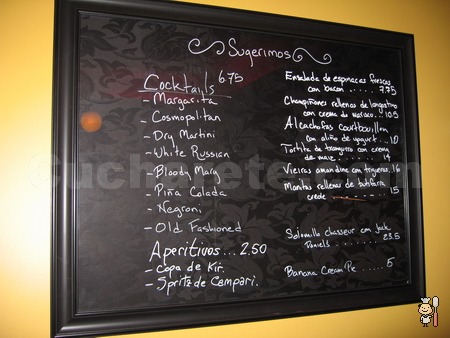 Sugerimos
Cocktails 6.75
- Margarita
- Cosmopolitan
- Dry Martini
- White Russian
- Bloody Mary
- Piña Colada
- Negroni
- Old Fashioned
Aperitivos... 2.50
- Copa de Kir.
- Spritz de Campari.
Ensalada de espinacas frescas
con bacon ..... 7.75
Champiñones rellenos de langostino
con crema de marisco.. 10.5
Alcachofas courtbouillon
con aliño de yogurt.. 10
Tortita de txangurro con crema
de maiz ....... 14
Vieiras amandine con trigueros. 16
Manitas rellenas de butifarra
........ 15
Solomillo chasseur con Jack
Daniels ....... 23.5
Banana Cream Pie ...... 5